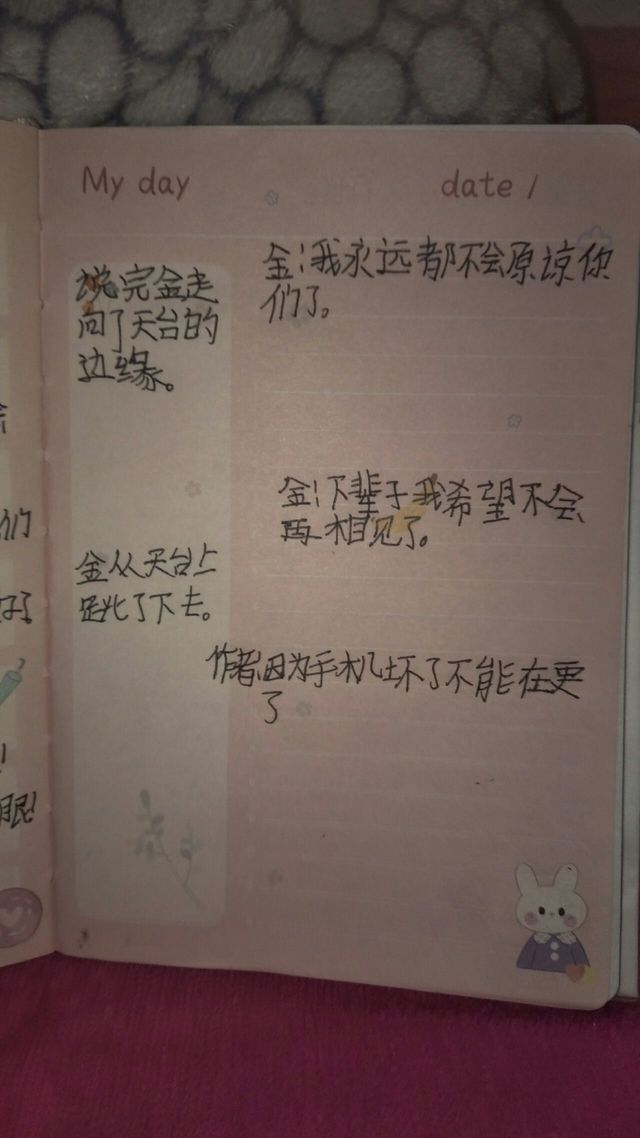 My day
date /
金:我永远都不会原谅你
们了。
说完金走
向了天台的
边缘。
金:下辈子我希望不会
再相见了。
金从天台上
跳了下去。
作者因为手机坏了不能在更
了
们
好了
!
眼!